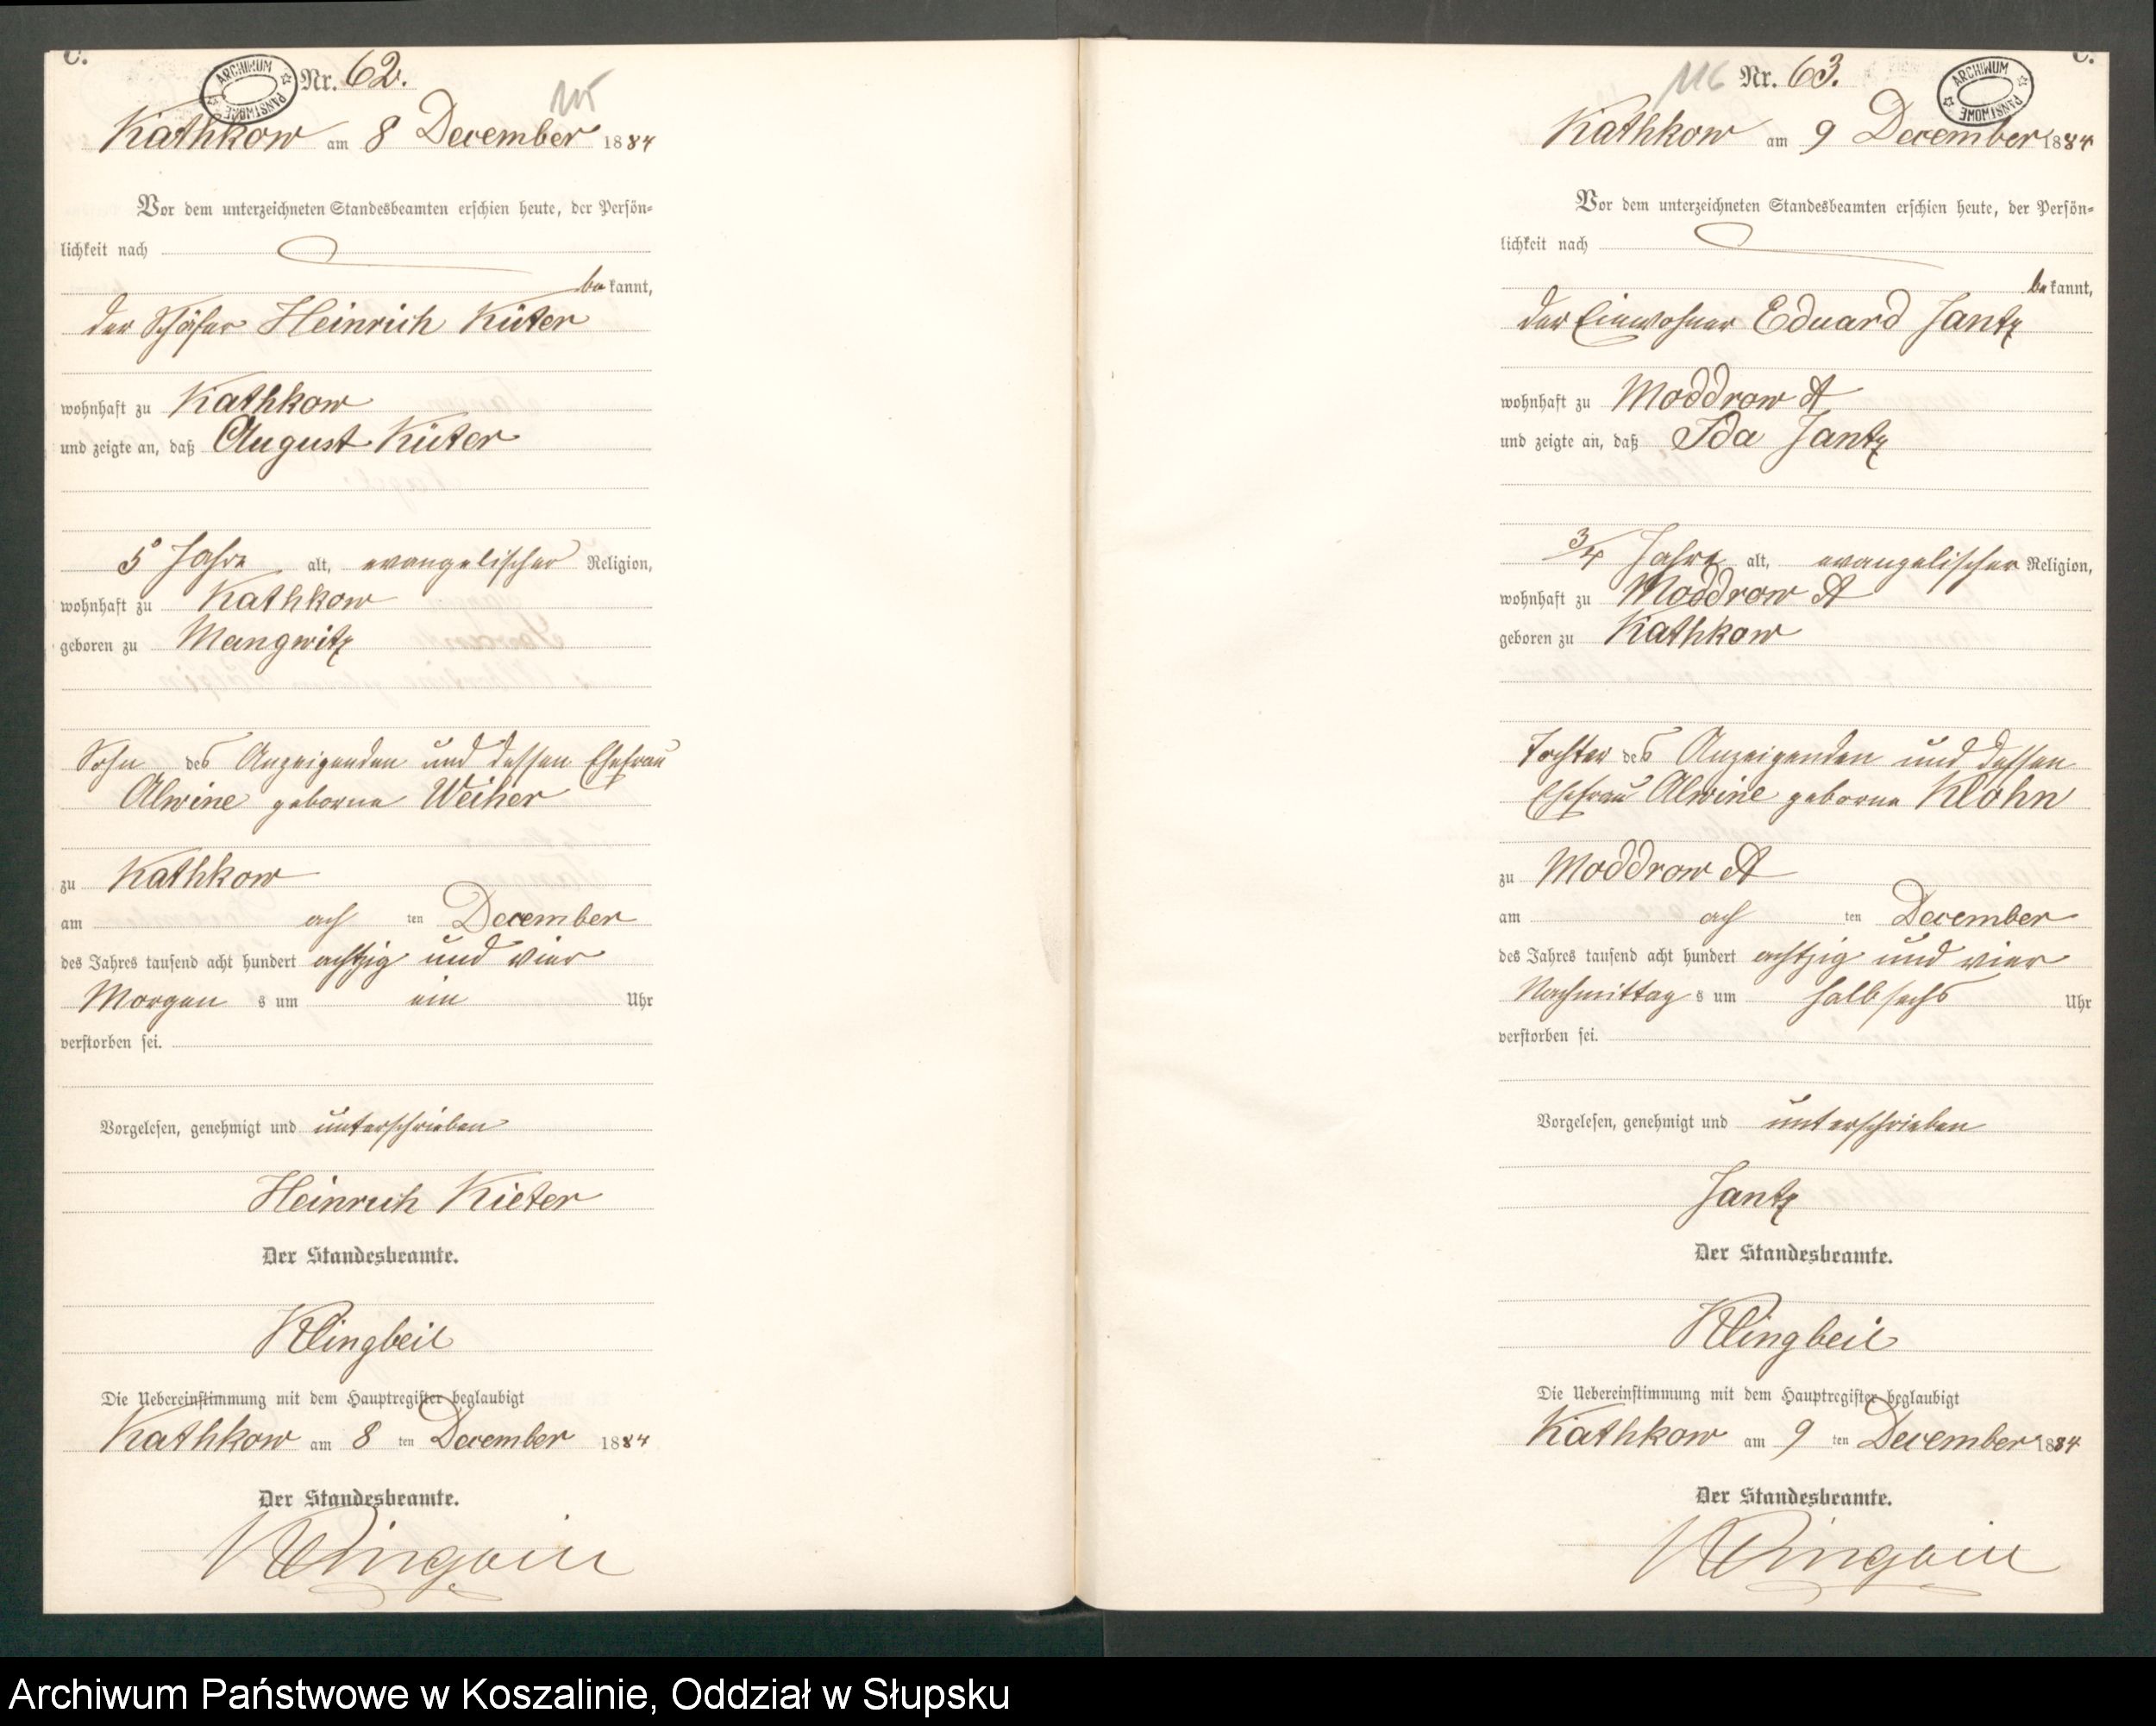 C.
ARCHIWUM PAŃSTWOWE
Nr. 62.
115
Kathkow am 8 December 1884
Vor dem unterzeichneten Standesbeamten erschien heute, der Persön-
lichkeit nach
be kannt,
der Schäfer Heinrich Küter
wohnhaft zu Kathkow
und zeigte an, daß August Küter
5 Jahre alt, evangelischer Religion,
wohnhaft zu Kathkow
geboren zu Mangwitz
Sohn des Anzeigenden und dessen Ehefrau
Alwine geborne Weiher
zu Kathkow
am ach ten December
des Jahres tausend acht hundert achtzig und vier
Morgen s um ein Uhr
verstorben sei.
Vorgelesen, genehmigt und unterschrieben
Heinrich Kieter
Der Standesbeamte.
Klingbeil
Die Uebereinstimmung mit dem Hauptregister beglaubigt
Kathkow am 8 ten December 1884
Der Standesbeamte.
Klingbeil
C.
ARCHIWUM PAŃSTWOWE
116
Nr. 63.
Kathkow am 9 December 1884
Vor dem unterzeichneten Standesbeamten erschien heute, der Persön-
lichkeit nach
be kannt,
der Einwohner Eduard Jantz
wohnhaft zu Moddrow A
und zeigte an, daß Ida Jantz
3/4 Jahre alt, evangelischer Religion,
wohnhaft zu Moddrow A
geboren zu Kathkow
Tochter des Anzeigenden und dessen
Ehefrau Alwine geborne Klohn
zu Moddrow A
am ach ten December
des Jahres tausend acht hundert achtzig und vier
Nachmittag s um halb sechs Uhr
verstorben sei.
Vorgelesen, genehmigt und unterschrieben
Jantz
Der Standesbeamte.
Klingbeil
Die Uebereinstimmung mit dem Hauptregister beglaubigt
Kathkow am 9 ten December 1884
Der Standesbeamte.
Klingbeil
Archiwum Państwowe w Koszalinie, Oddział w Słupsku